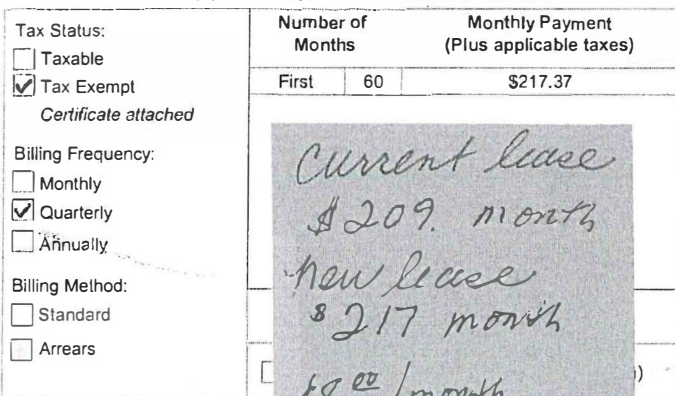 Tax Status:
Taxable
Tax Exempt
Certificate attached
Billing Frequency:
Monthly
Quarterly
Annually
Billing Method:
Standard
Arrears
Number of Months
Monthly Payment
(Plus applicable taxes)
First 60 $217.37
Current lease
$209. month
New lease
$217 month
$8.00/month
)